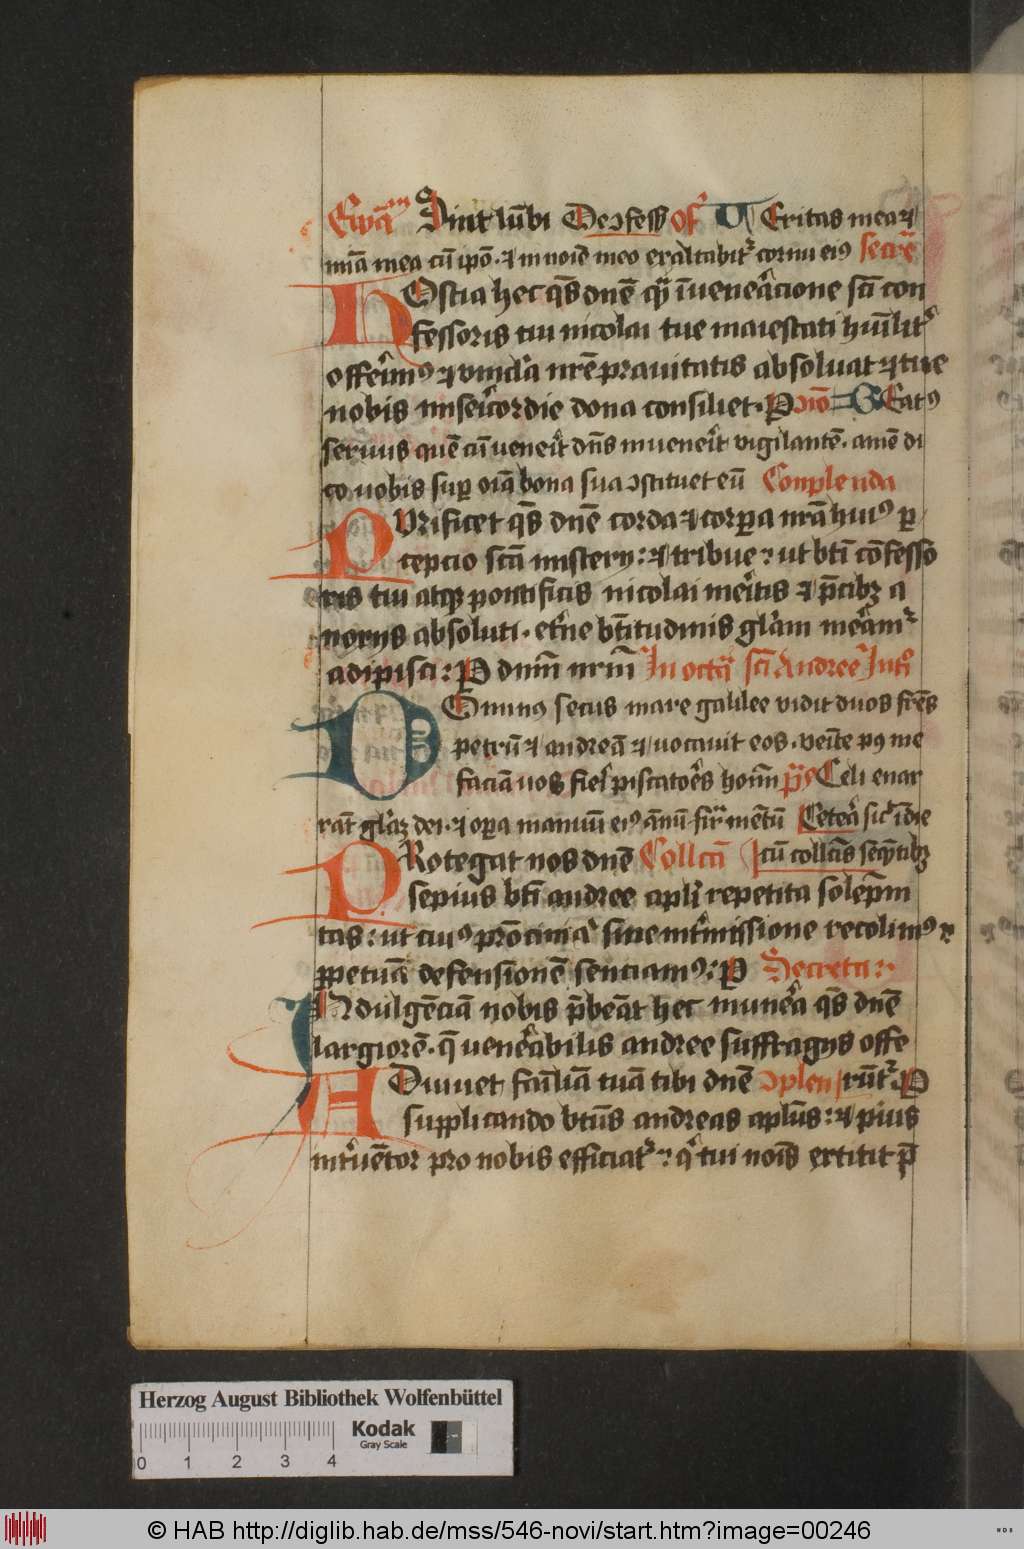 Ewāͫ Sint lūbi De ɔfess Of̄ᵐ VEritas mea ⁊
mīa mea cū ip̄o · ⁊ in noīe meo exaltabit᷑ cornu eiꝰ secrē
HOstia hec q̄s dn̄e q̄ in veneʼacione sc̄i con
fessoris tui nicolai tue maiestati hūilit᷑
offeʼimꝰ ⁊ a vincla nr̄e prauitatis absoluat ⁊ tue
nobis miseʼicordie dona consiliet · P Cōio BEatꝰ
seruus quē cū veneʼit dn̄s inueneʼit vigilantē · amē di
co vobis suꝑ oīa bona sua ɔstituet eū Conplenda
PUrificet q̄s dn̄e corda ⁊ corꝑa nr̄a huiꝰ ꝑ
cepcio sc̄i misterij : ⁊ tribue : ut bt̄i cōfesso
ris tui atqꝫ pontificis nicolai meʼitis ⁊ p̄cibꝫ a
noxijs absoluti · et᷑ne bt̄itudinis glʼiam meʼeam᷑
adipisci : P dn̄m nr̄m In octaʼ sc̄i Andree Int᷑ꝰ
DOminꝰ secus mare galilee vidit duos frēs
petrū ⁊ andreā ⁊ vocauit eos · veīte pꝰ me
faciā vos fieʼi piscatoʼes hoīm p̄s Celi enar
rāt glʼiaꝫ dei · ⁊ oꝑa manuū eiꝰ ānū · firʼmētū Ceteʼa sicʼ ī die
PRotegat nos dn̄e Collcta cū collc̄is seq̄ntibꝫ
sepius bt̄i andree apl̄i repetita solēpni
tas : ut cuiꝰ p̄rocinia sine int᷑missione recolimꝰ
ꝑpetuā defensionē senciamꝰ : P Secreta :
INdulgēciā nobis p̄beāt hec muneʼa q̄s dn̄e
largiorē · q̄ veneʼabilis andree suffragijs offe
ADiuvet fāiliā tuā tibi dn̄e ɔplen rūt᷑ P
supplicando bt̄us andreas apl̄us : ⁊ pius
int᷑uētor pro nobis efficiat᷑ : qʼ tui noīs extitit p̄
Herzog August Bibliothek Wolfenbüttel
Kodak
Gray Scale
0 1 2 3 4
© HAB http://diglib.hab.de/mss/546-novi/start.htm?image=00246